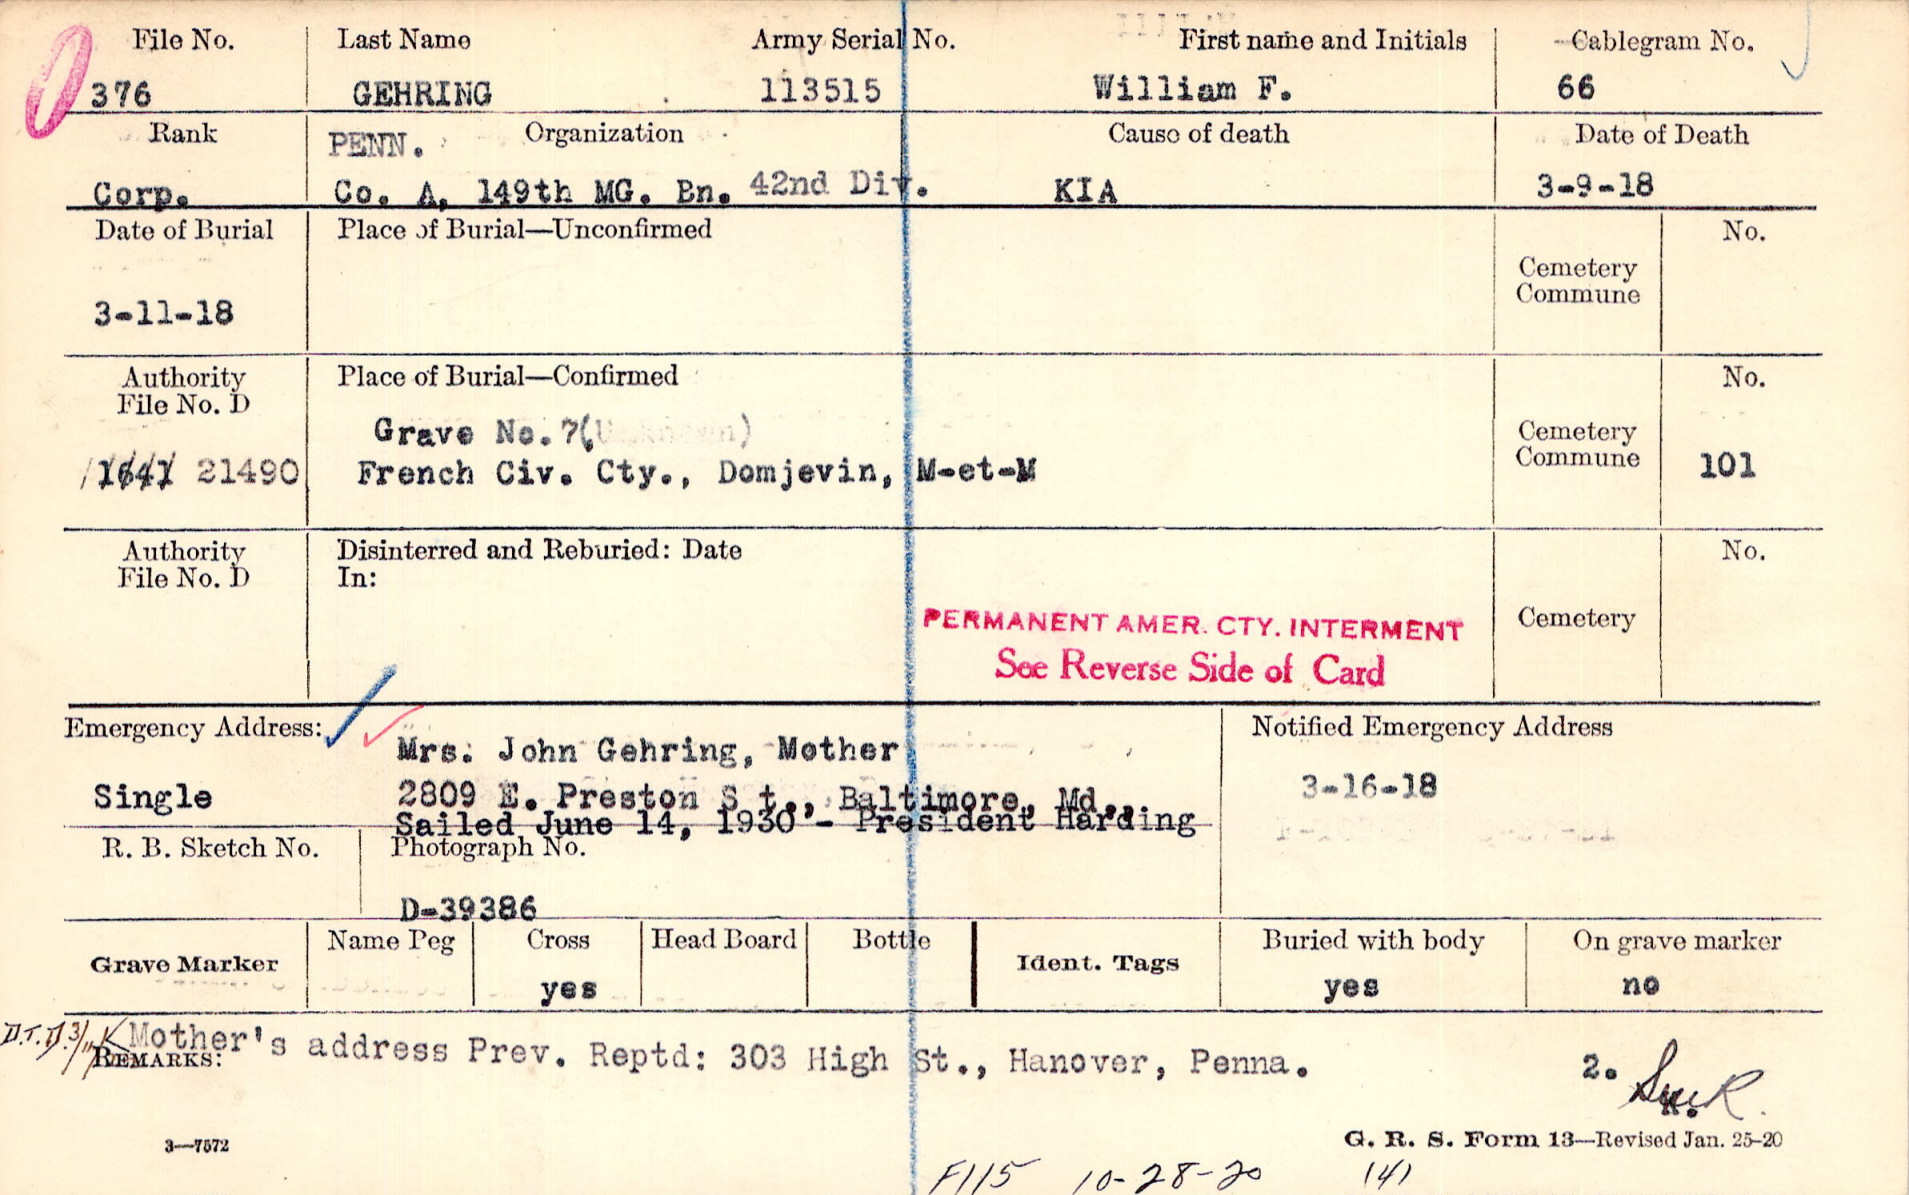 File No. Last Name Army Serial No. First name and Initials Cablegram No.
376 GEHRING 113515 William F. 66
Rank PENN. Organization Cause of death Date of Death
Corp. Co. A, 149th MG. Bn. 42nd Div. KIA 3-9-18
Date of Burial Place of Burial—Unconfirmed No.
Cemetery
Commune
3-11-18
Authority Place of Burial—Confirmed No.
File No. D
Grave No. 7(Unknown)
Cemetery
Commune
1641 21490 French Civ. Cty., Domjevin, M-et-M 101
Authority Disinterred and Reburied: Date No.
File No. D In:
Cemetery
PERMANENT AMER. CTY. INTERMENT
See Reverse Side of Card
Emergency Address: Notified Emergency Address
Mrs. John Gehring, Mother
Single 2809 E. Preston St., Baltimore, Md., 3-16-18
Sailed June 14, 1930 - President Harding
R. B. Sketch No. Photograph No.
D-39386
Grave Marker Name Peg Cross Head Board Bottle Ident. Tags Buried with body On grave marker
yes yes no
D.T.D. 3/11/ Mother's address Prev. Reptd: 303 High St., Hanover, Penna. 2.
REMARKS:
3—7572 G. R. S. Form 13—Revised Jan. 25-20
F115 10-28-20 (4)